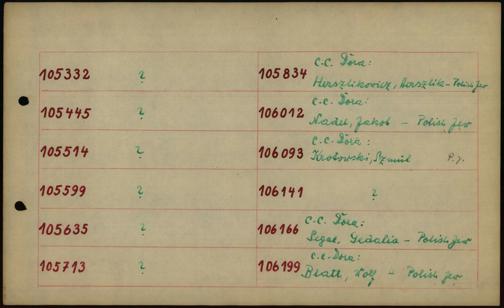 105332 ?
105445 ?
105514 ?
105599 ?
105635 ?
105713 ?
105834 C.C. Dora:
Herszlikovicz, Herszlik - Polish Jew
106012 C.C. Dora:
Nadel, Jakob - Polish Jew
106093 C.C. Dora:
Krotowski, Szmul P.J.
106141 ?
106166 C.C. Dora:
Segal, Gedalia - Polish Jew
106199 C.C. Dora:
Blatt, Wolf - Polish Jew